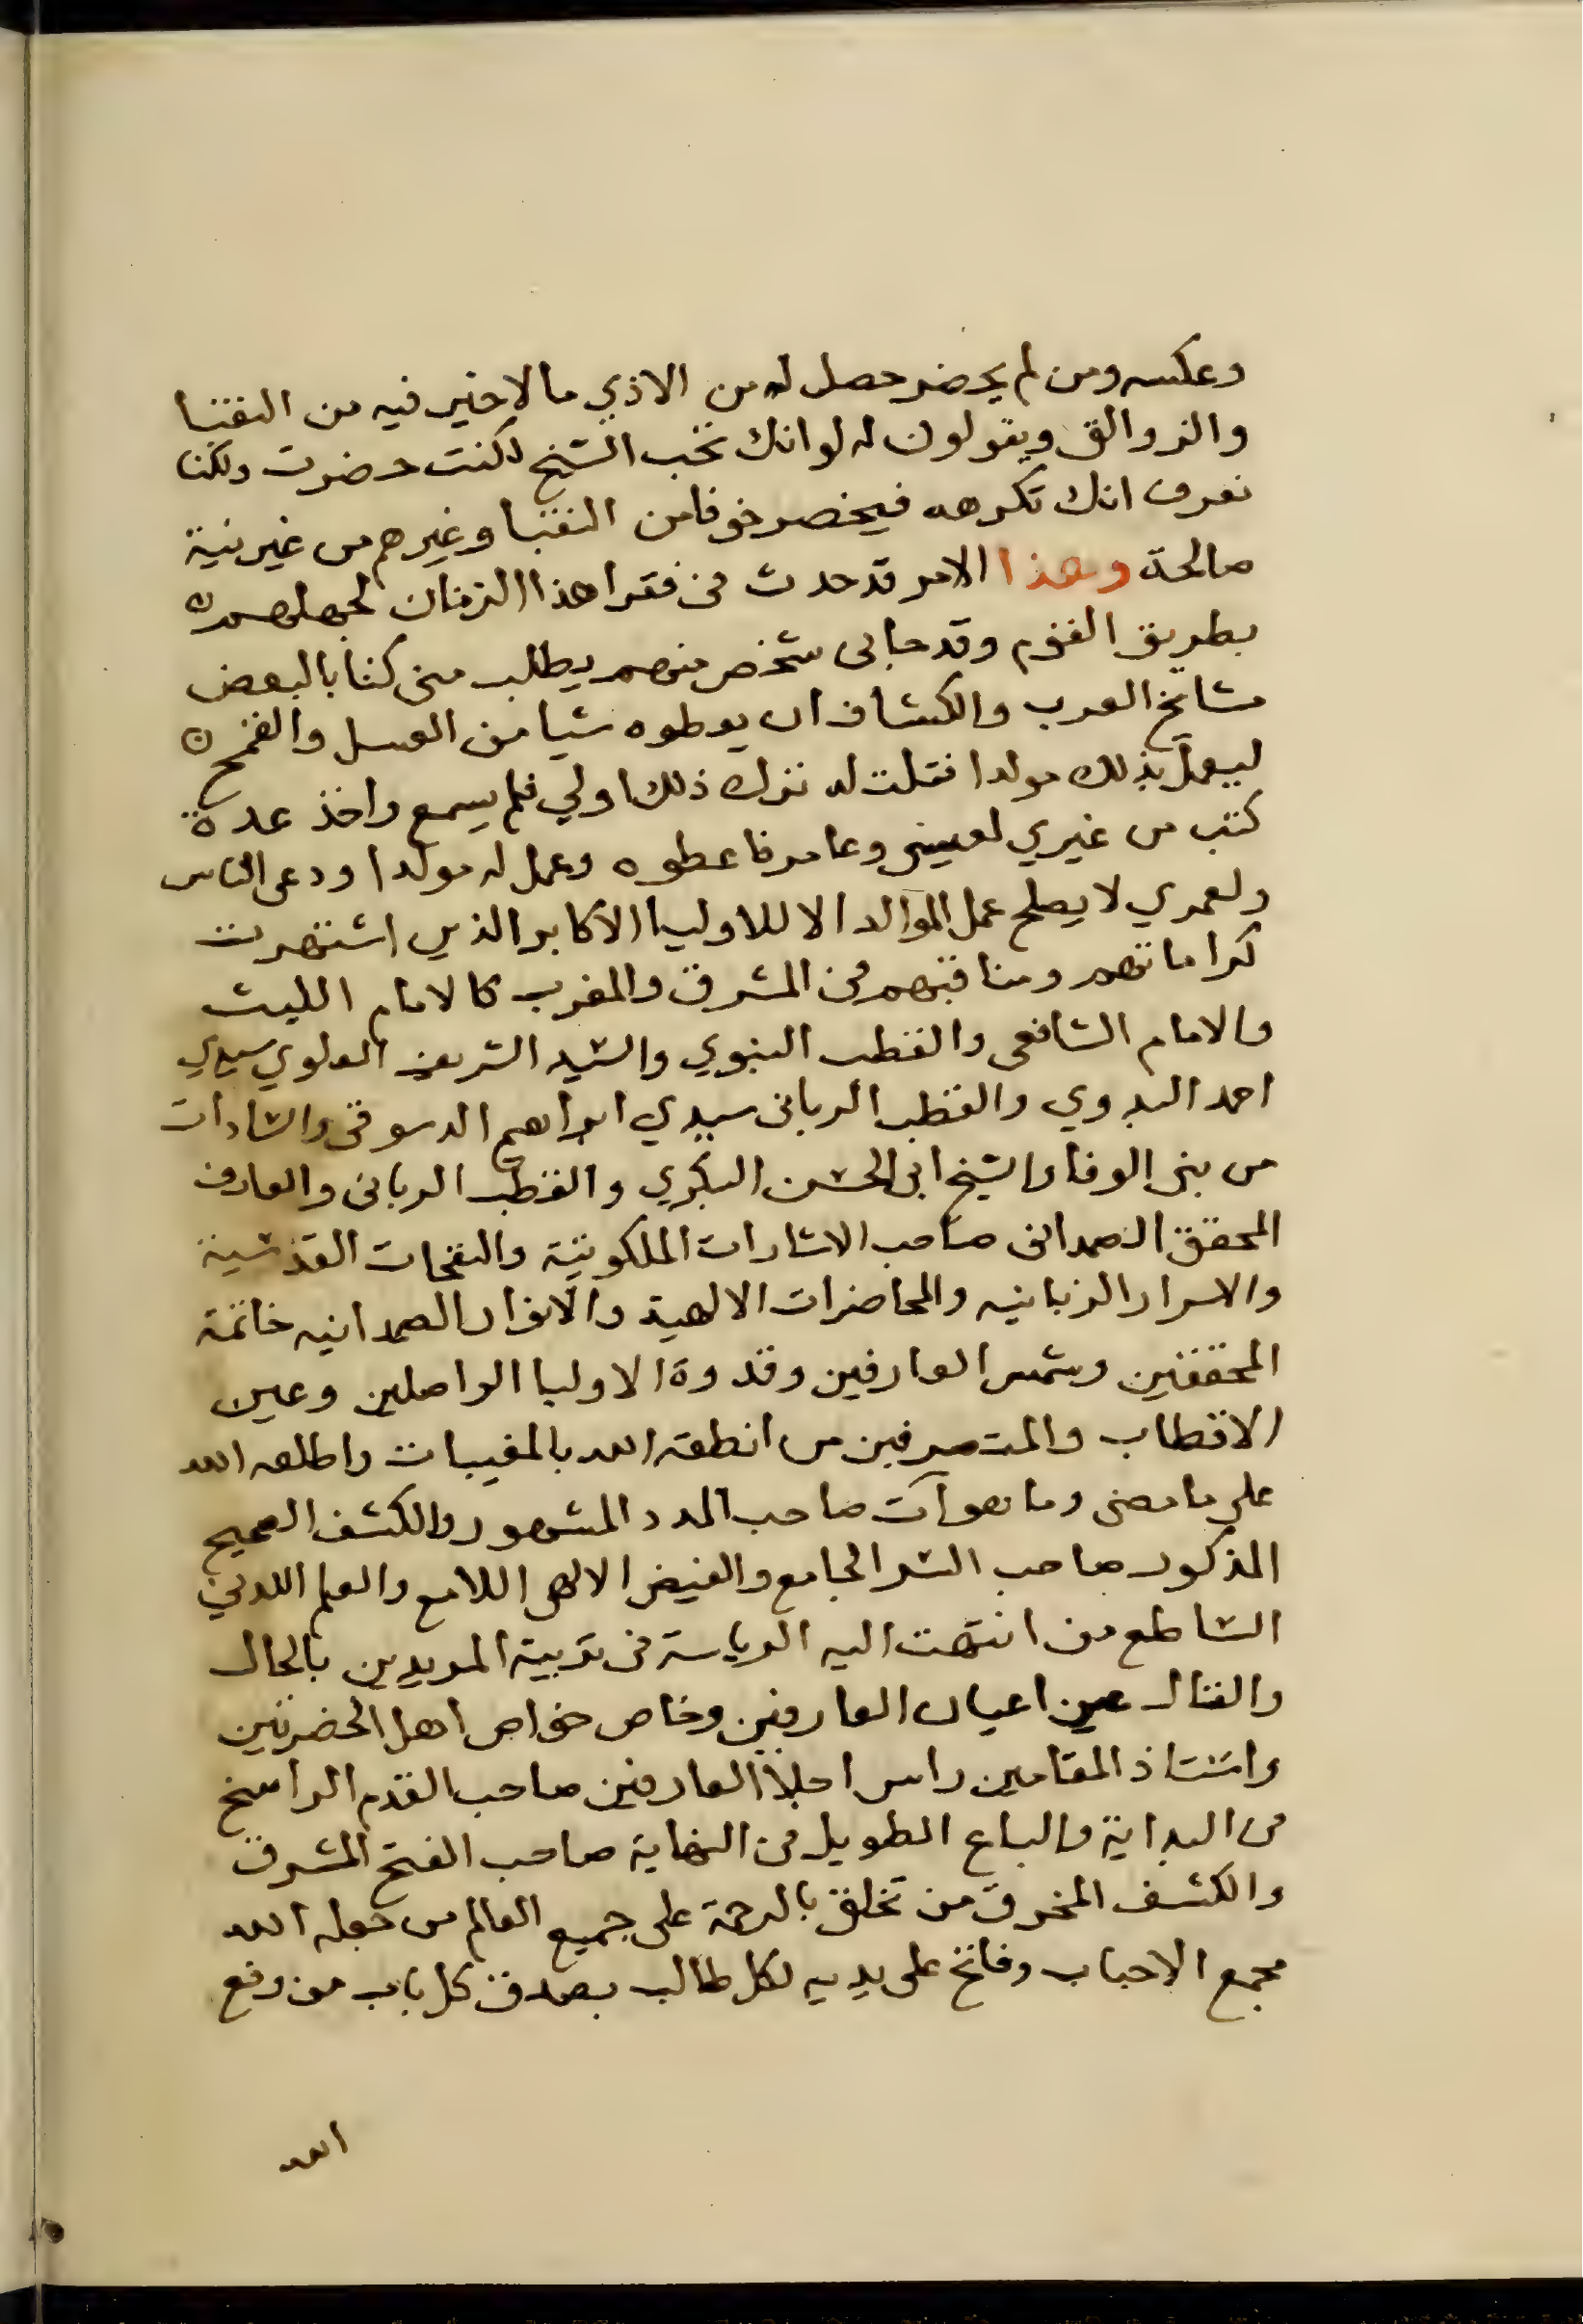 وعكسه ومن لم يحضر حصل له من الاذي ما لا خير فيه من النقبا
والزوالق ويقولون له لو انك تحب الشيخ لكنت حضرت ولكنا
نعرف انك تكرهه فيحضر خوفا من النقبا وغيرهم من غير نية
صالحة وهذا الامر قد حدث في فقرا هذا الزمان لجهلهم
بطريق القوم وقد جاني شخص منهم يطلب مني كتابا لبعض
مشايخ العرب والكشاف ان يعطوه شيا من العسل والقمح
ليعمل بذلك مولدا فقلت له ترك ذلك اولي فلم يسمع واخذ عدة
كتب من غيري لعيسى وعامر فاعطوه وعمل له مولدا ودعى الناس
ولعمري لا يصلح عمل الموالد الا للاوليا الاكابر الذين اشتهرت
كراماتهم ومناقبهم في المشرق والمغرب كالامام الليث
والامام الشافعى والقطب النبوي والسيد الشريف العلوي سيدي
احمد البدوي والقطب الرباني سيدي ابراهيم الدسوقي والسادات
من بني الوفا والشيخ ابي الحسن البكري والقطب الرباني والعارف
المحقق الصمداني صاحب الاشارات الملكوتية والنفحات القدسية
والاسرار الربانيه والمحاضرات الالهية والانوار الصمدانيه خاتمة
المحققين وشمس العارفين وقدوة الاوليا الواصلين وعين
الاقطاب والمتصرفين من انطقه الله بالمغيبات واطلعه الله
على ما مضى وما هو آت صاحب المدد المشهور والكشف الصحيح
المذكور صاحب السر الجامع والفيض الالهى اللامع والعلم اللدني
الساطع من انتهت اليه الرياسة في تربية المريدين بالحال
والقال عين اعيان العارفين وخاص خواص اهل الحضرتين
واستاذ المقامين راس اجلا العارفين صاحب القدم الراسخ
في البداية والباع الطويل في النهاية صاحب الفتح المشرق
والكشف المخرق من تخلق بالرحمة على جميع العالم من جعله الله
مجمع الاحباب وفاتح على يديه لكل طالب بصدق كل باب من رفع
الله